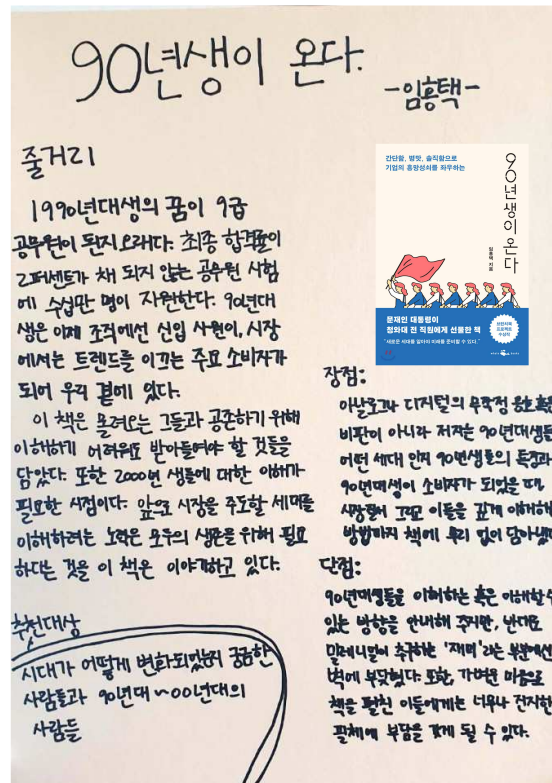 90년생이 온다.
-임홍택-
줄거리
1990년대생의 꿈이 9급
공무원이 된지 오래다. 최종 합격률이
2퍼센트가 채 되지 않는 공무원 시험
에 수십만 명이 지원한다. 90년대
생은 이제 조직에선 신입 사원이, 시장
에서는 트렌드를 이끄는 주요 소비자가
되어 우리 곁에 있다.
이 책은 몰려오는 그들과 공존하기 위해
이해하기 어려워도 받아들여야 할 것들을
담았다. 또한 2000년 생들에 대한 이해가
필요한 시점이다. 앞으로 시장을 주도할 세대를
이해하려는 노력은 모두의 생존을 위해 필요
하다는 것을 이 책은 이야기하고 있다.
추천대상
시대가 어떻게 변화되었는지 궁금한
사람들과 90년대~00년대의
사람들
간단함, 병맛, 솔직함으로
기업의 흥망성쇠를 좌우하는
90년생이 온다
임홍택 지음
문재인 대통령이
청와대 전 직원에게 선물한 책
"새로운 세대를 알아야 미래를 준비할 수 있다."
브런치북
프로젝트
수상작
장점:
아날로그나 디지털의 무작정 옹호 혹은
비판이 아니라 저자는 90년대생들
어떤 세대 인지 90년생들의 특징과
90년대생이 소비자가 되었을 때,
시장에서 그리고 이들을 깊게 이해해
방법까지 책에 무리 없이 담아냈다
단점:
90년대생들을 이해하는 혹은 이해할 수
있는 방향을 안내해 주지만, 반대로
밀레니얼이 추구하는 '재미'라는 부분에선
벽에 부딪혔다. 또한, 가벼운 마음으로
책을 펼친 이들에게는 너무나 진지한
필체에 부담을 갖게 될 수 있다.